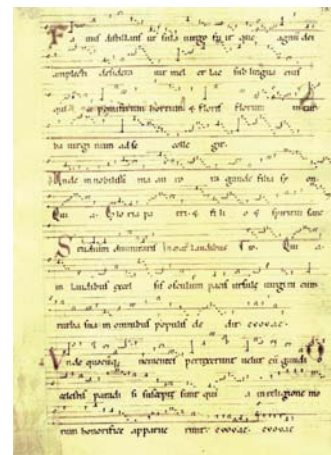 Fa uus distillans ur sula uirgo fu it que agni dei
amplecti desidera uit mel et lac sub lingua eius
quia pomiferum hortum & florē florum in tur
ba uirginum ad se colle git.
Unde in nobilissi ma au ro ra gaude filia sy on
Qui a. Glo ria pa tri & fi li o & spiritui sanc
Studium diuinitatis in laudibus Qui a.
in laudibus excel sis osculum pacis ursule uirgini cum
turba sua in omnibus populis de dit euouae.
Unde quocūq; uenientes perrexerunt uelut cū gaudi o
celestis paradi si suscepte sunt qui a in religione mo
rum honorifice apparue runt. euouae. euouae